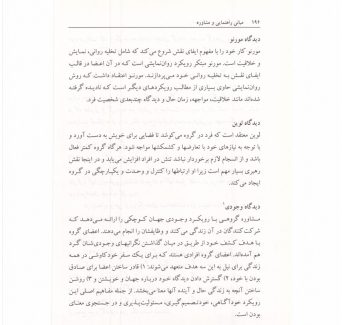 ۱۹۶ مبانی راهنمایی و مشاوره
دیدگاه مورنو
مورنو کار خود را با مفهوم ایفای نقش شروع می‌کند که شامل تخلیه روانی، نمایش
و خلاقیت است. مورنو مبتکر رویکرد روان‌نمایشی است که در آن اعضا در قالب
ایفای نقش به تخلیه روانی خود می‌پردازند. مورنو اعتقاد داشت که روش
روان‌نمایشی حاوی بسیاری از مطالب رویکردهای دیگر است که نادیده گرفته
شده‌اند مانند خلاقیت، مواجهه، زمان حال و دیدگاه چندبعدی شخصیت فرد.
دیدگاه لوین
لوین معتقد است که فرد در گروه می‌کوشد تا فضایی برای خویش به دست آورد و
با توجه به نیازهای خود با تعارضها و کشمکشها مواجه شود. هرگاه گروه کمتر فعال
باشد و از انسجام لازم برخوردار نباشد تنش در افراد افزایش می‌یابد و در اینجا نقش
رهبری بسیار مهم است زیرا او ارتباطها را کنترل و وحدت و یکپارچگی در گروه
ایجاد می‌کند.
دیدگاه وجودی۱
مشاوره گروهی با رویکرد وجودی جهان کوچکی را ارائه می‌دهد که
شرکت‌کنندگان در آن زندگی می‌کنند و وظایفشان را انجام می‌دهند. اعضای گروه
با هدف کشف خود از طریق در میان گذاشتن نگرانیهای وجودی‌شان گرد
هم آمده‌اند. اعضای گروه افرادی هستند که برای یک سفر خودکاوشی در همه
زندگی برای نیل به این سه هدف متعهد می‌شوند: ۱) قادر ساختن اعضا برای صادق
بودن با خود، ۲) گسترش دادن دیدگاه خود درباره جهان و خویشتن و ۳) روشن
ساختن آنچه به زندگی حال و آینده آنها معنا می‌بخشد. از جمله مفاهیم اصلی این
رویکرد خودآگاهی، خودتصمیم‌گیری، مسئولیت‌پذیری و در جستجوی معنای
بودن است.